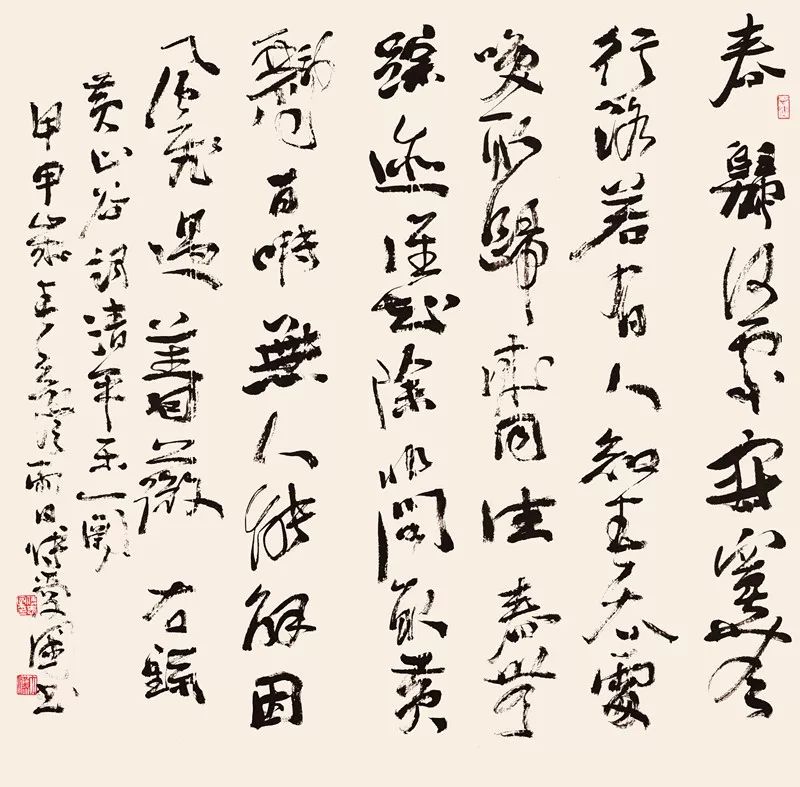 春歸何處寂寞無
行路若有人知春去處
喚取歸來同住春無
踪迹誰知除非問取黃
鸝百囀無人能解因
風飛過薔薇 右錄
黃山谷詞清平樂一闋
甲申歲 雨日 書